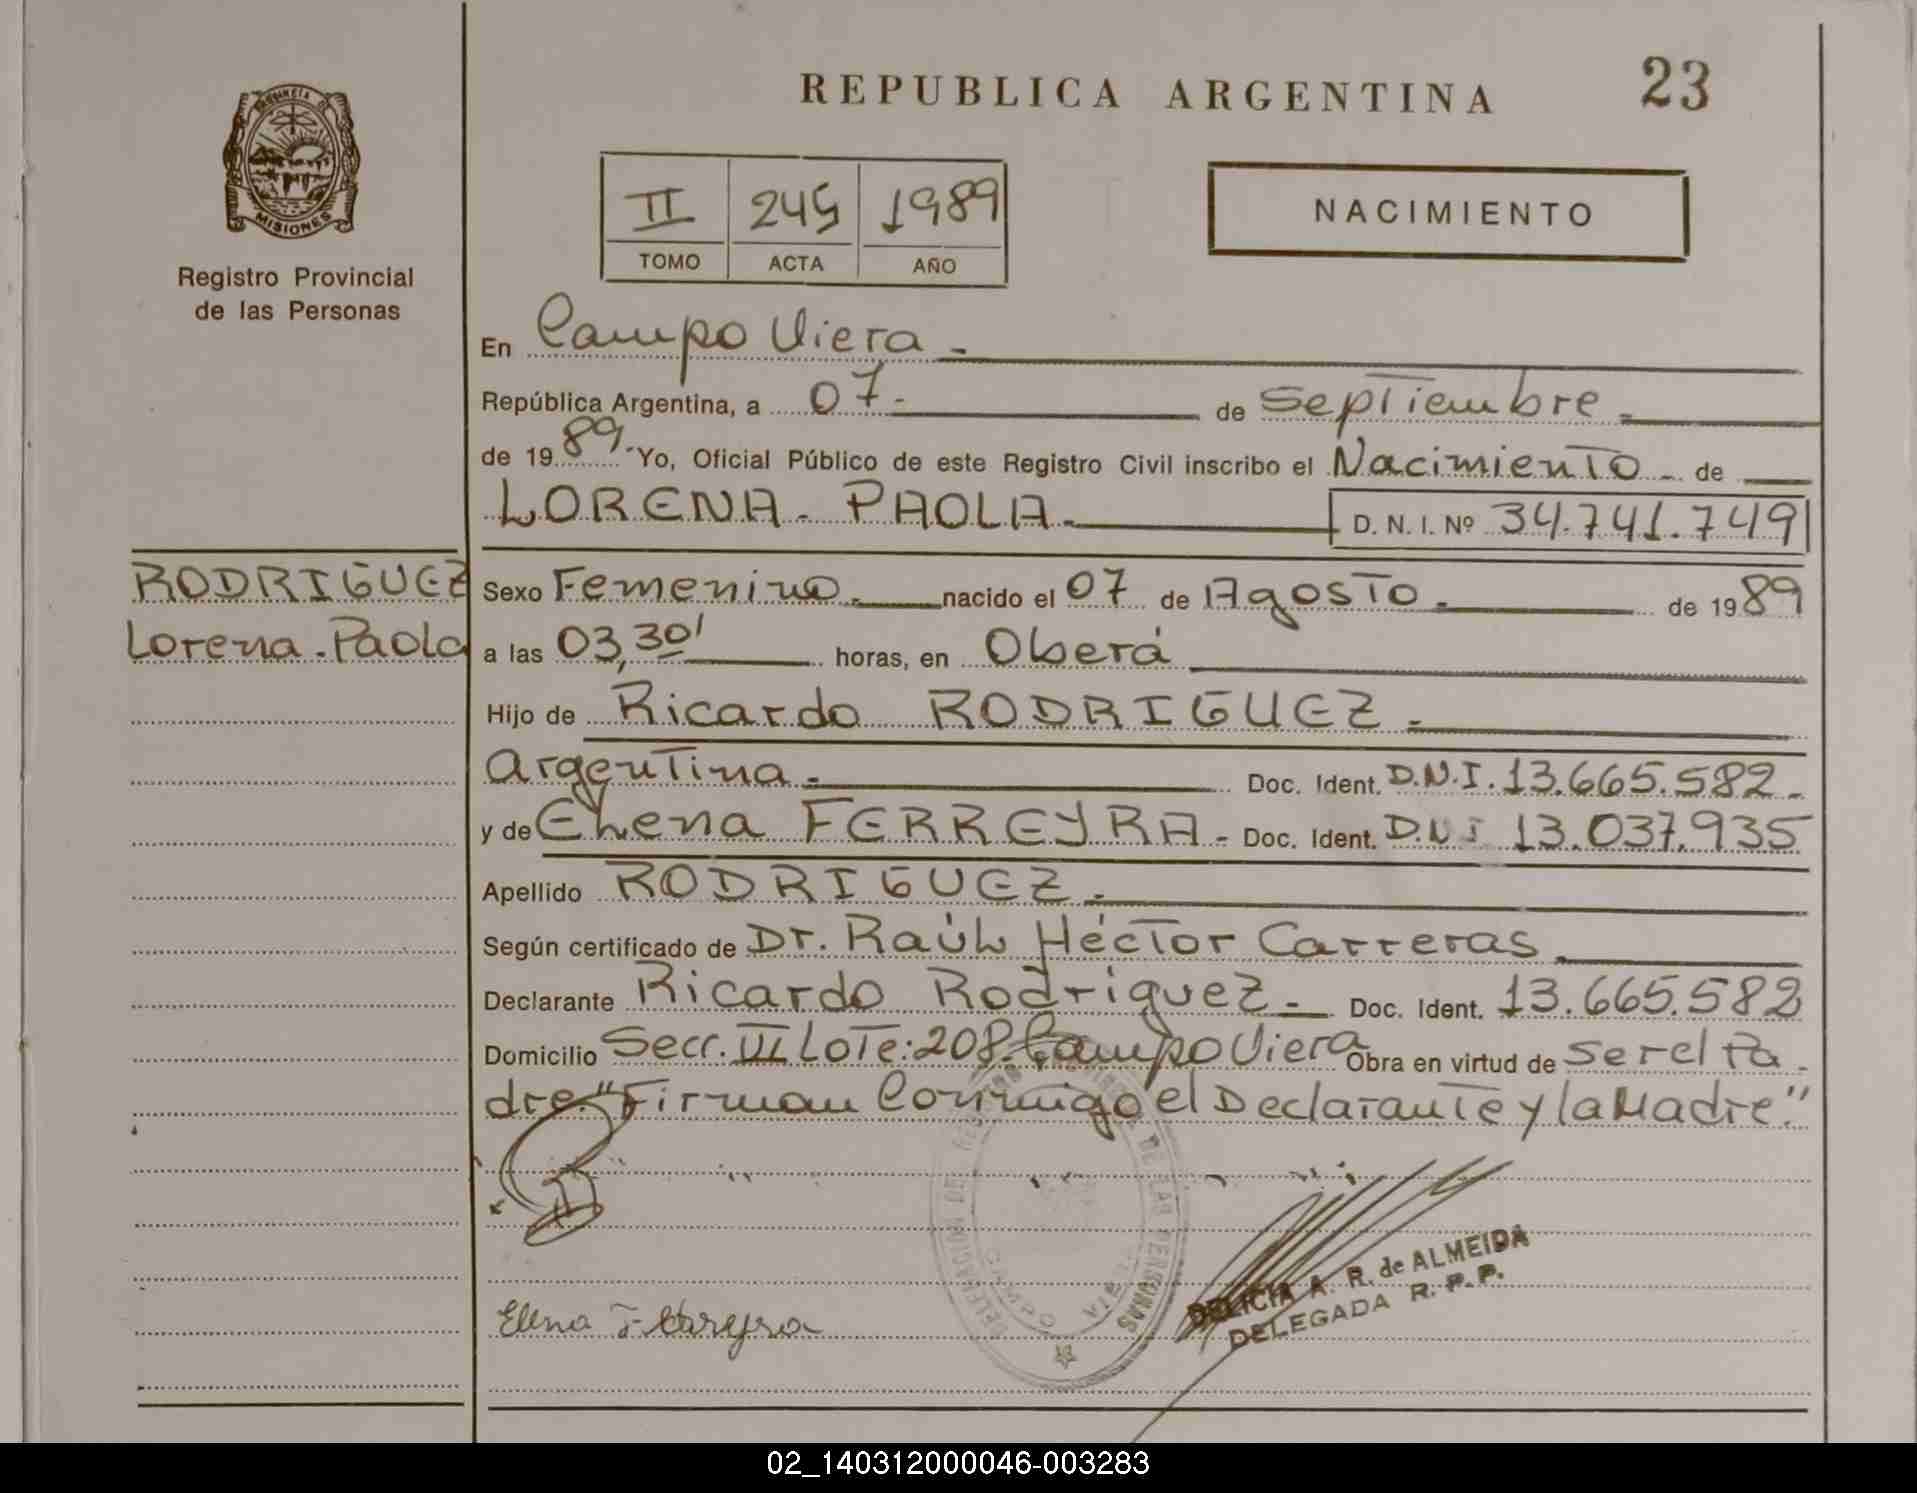 REPUBLICA ARGENTINA
23
PROVINCIA DE
MISIONES
Registro Provincial
de las Personas
II 245 1989
TOMO ACTA AÑO
NACIMIENTO
En Campo Viera -
República Argentina, a 07- de Septiembre -
de 1989.- Yo, Oficial Público de este Registro Civil inscribo el Nacimiento - de
LORENA - PAOLA - D. N. I. Nº 34.741.749
RODRIGUEZ
Lorena - Paola
Sexo Femenino - nacido el 07 de Agosto - de 1989
a las 03,30' horas, en Oberá
Hijo de Ricardo RODRIGUEZ -
Argentina - Doc. Ident. D.N.I. 13.665.582-
y de ELena FERREYRA - Doc. Ident. D.N.I 13.037.935
Apellido RODRIGUEZ -
Según certificado de Dr. Raúl Héctor Carreras
Declarante Ricardo Rodriguez - Doc. Ident. 13.665.582
Domicilio Secc. VI Lote: 208. Campo Viera Obra en virtud de ser el Pa-
dre "Firman Conmigo el Declarante y la Madre"
DE LAS PERSONAS
CAMPO VIERA
DELICIA A. R. de ALMEIDA
DELEGADA R. P. P.
Elena Ferreyra
02_140312000046-003283